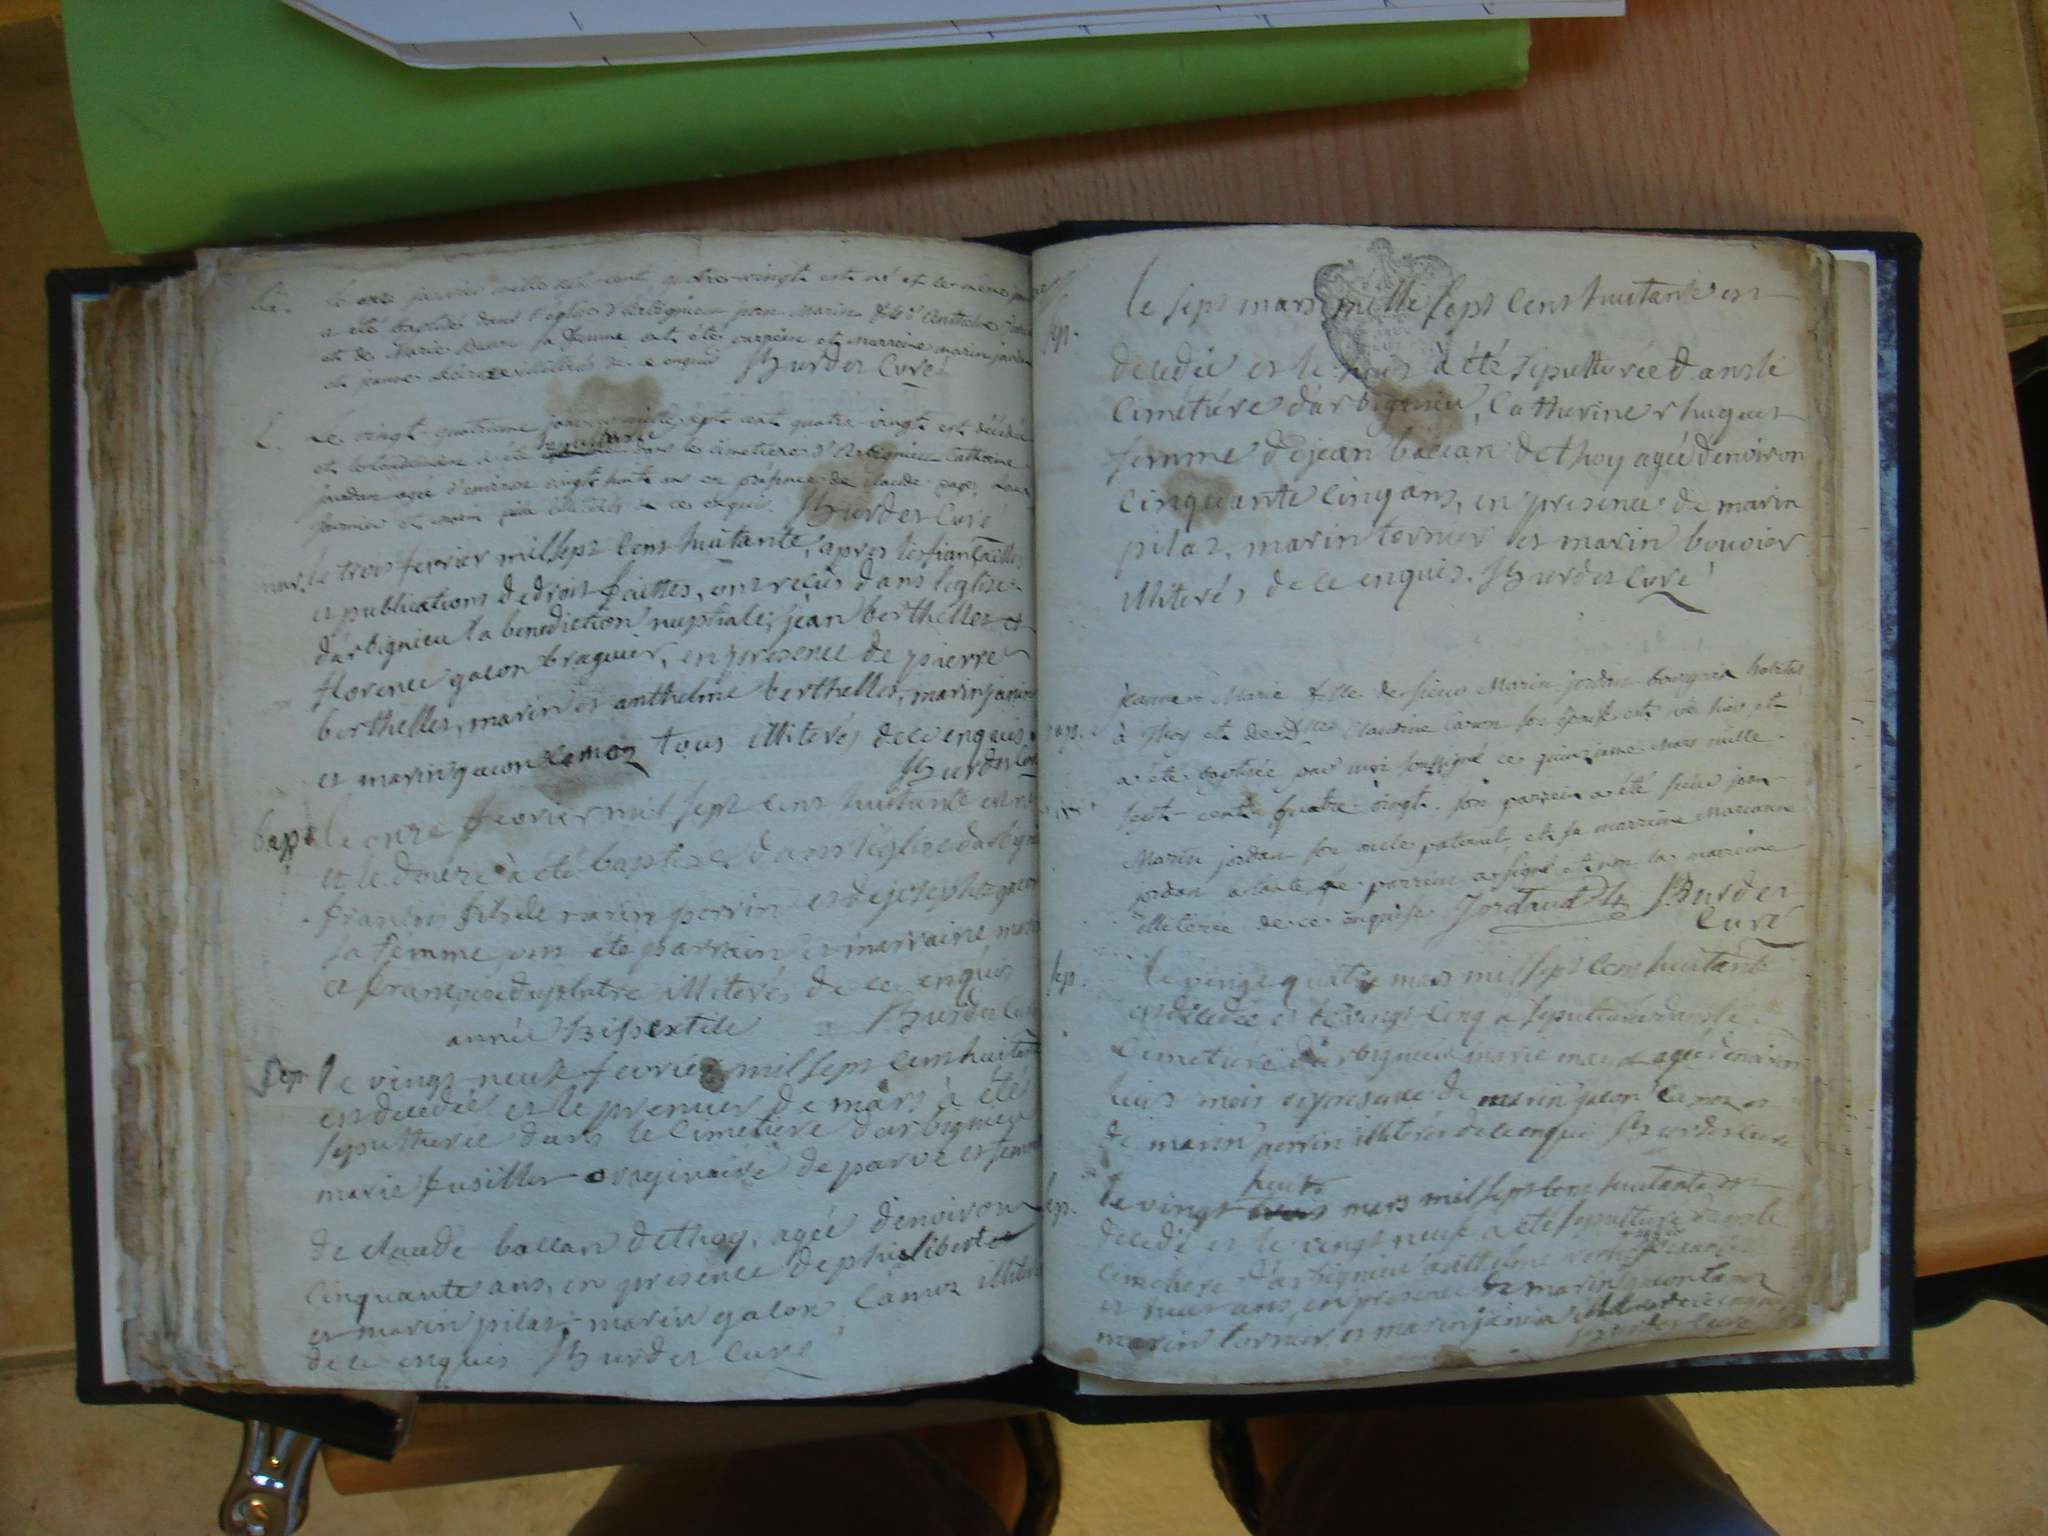 le onze janvier mille sept cent quatre-vingt est né et le même jour
a été baptisé dans l'église d'Arbignieu jean Marin fils d'Anthelme
et de Marie sa femme ont été parrein et marreine marin jordan
et jeanne illitérés de ce enquis Burdet Curé
Le vingt-quatrième janvier mille sept cent quatre-vingt est décédée
et le lendemain a été sepulturée dans le cimetière d'Arbignieu Catherine
jordan agée d'environ vingt huit ans en présence de Claude
fornier et marin pilaz illitérés de ce enquis. Burdet Curé
mar. le trois fevrier mil sept cent huitante, apres les fiançailles
et publications de droit faittes, ont reçus dans l'eglise
d'arbignieu la benediction nuptiale; jean berthellet et
florence gacon braguier, en presence de pierre
berthellet, marin et anthelme berthellet, marin janin
et marin gacon camoz tous illiterés de ce enquis
Burdet Curé
bap. le onze fevrier mil sept cent huitante est né
et le douze à été baptisé dans l'église d'arbignieu
françois fils de marin perrin et de josephte gacon
sa femme, ont été parrain et marraine
et françoise illiterés de ce enquis
année Bissextile Burdet Curé
sep. le vingt neuf fevrier mil sept cent huitante
est decedée et le premier de mars à été
sepulturée dans le cimetiere d'arbignieu
marie fusillet originaire de parve et femme
de claude ballan de thoy, agée d'environ
cinquante ans, en presence de philibert
et marin pilaz, marin gacon camoz illiterés
de ce enquis Burdet Curé
sep. le sept mars mille sept cent huitante est
decedée et le huit a été sepulturée dans le
cimétiére d'arbignieu, Catherine huguet
femme de jean ballan de thoy agée d'environ
cinquante cinq ans, en presence de marin
pilaz, marin tornier et marin bouvier
illiterés de ce enquis. Burdet Curé
jeanne-Marie fille de sieur Marin jordan bourgeois habitant
à Thoy et de dlle Claudine Caron son épouse est née hier et
a été baptisée par moi soussigné ce quinzieme mars mille
sept-cent quatre-vingt. son parrein a été sieur jean
Marin jordan son oncle paternel et sa marreine Marianne
jordan sa tante le parrein a signé et non la marreine
illitérée de ce enquise Jordan Burdet
Curé
sep. le vingt quatre mars mil sept cent huitante
est decedée et le vingt cinq a sepulturée dans le
cimetiére d'arbignieu marie agée d'environ
huit mois en presence de marin gacon camoz et
de marin perrin illiterés de ce enquis Burdet Curé
huit
sep. le vingt mars mil sept cent huitante est
decedé et le vingt neuf a été sepulturé dans le
cimetiere d'arbignieu anthelme
et neuf ans, en presence de marin gacon camoz
marin tornier et marin janin illiterés de ce enquis
Burdet Curé